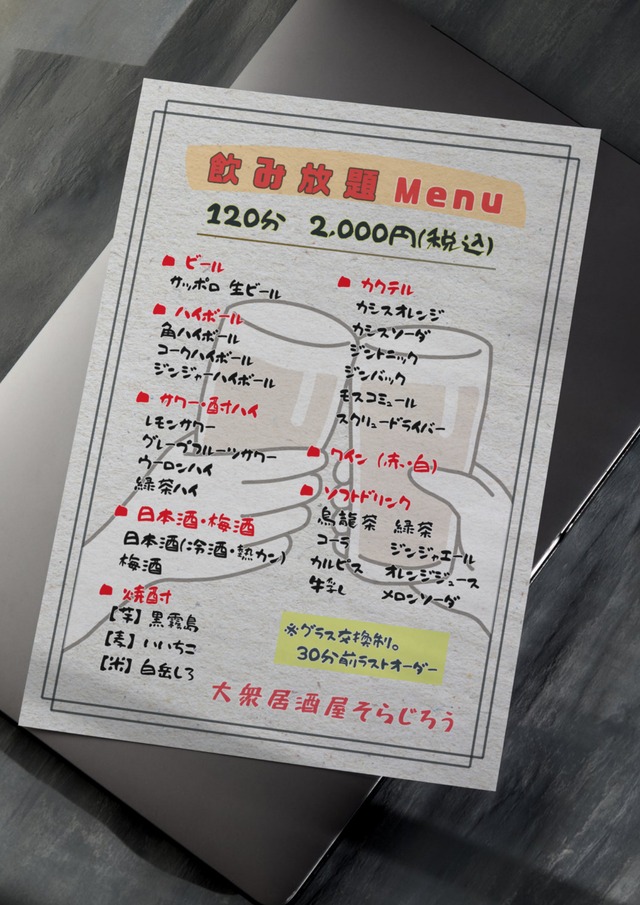 飲み放題 Menu
120分 2,000円(税込)
■ ビール
サッポロ 生ビール
■ ハイボール
角ハイボール
コークハイボール
ジンジャーハイボール
■ サワー・酎ハイ
レモンサワー
グレープフルーツサワー
ウーロンハイ
緑茶ハイ
■ 日本酒・梅酒
日本酒(冷酒・熱カン)
梅酒
■ 焼酎
【芋】 黒霧島
【麦】 いいちこ
【米】 白岳しろ
■ カクテル
カシスオレンジ
カシスソーダ
ジントニック
ジンバック
モスコミュール
スクリュードライバー
■ ワイン (赤・白)
■ ソフトドリンク
烏龍茶 緑茶
コーラ ジンジャエール
カルピス オレンジジュース
牛乳 メロンソーダ
※グラス交換制。
30分前ラストオーダー
大衆居酒屋そらじろう